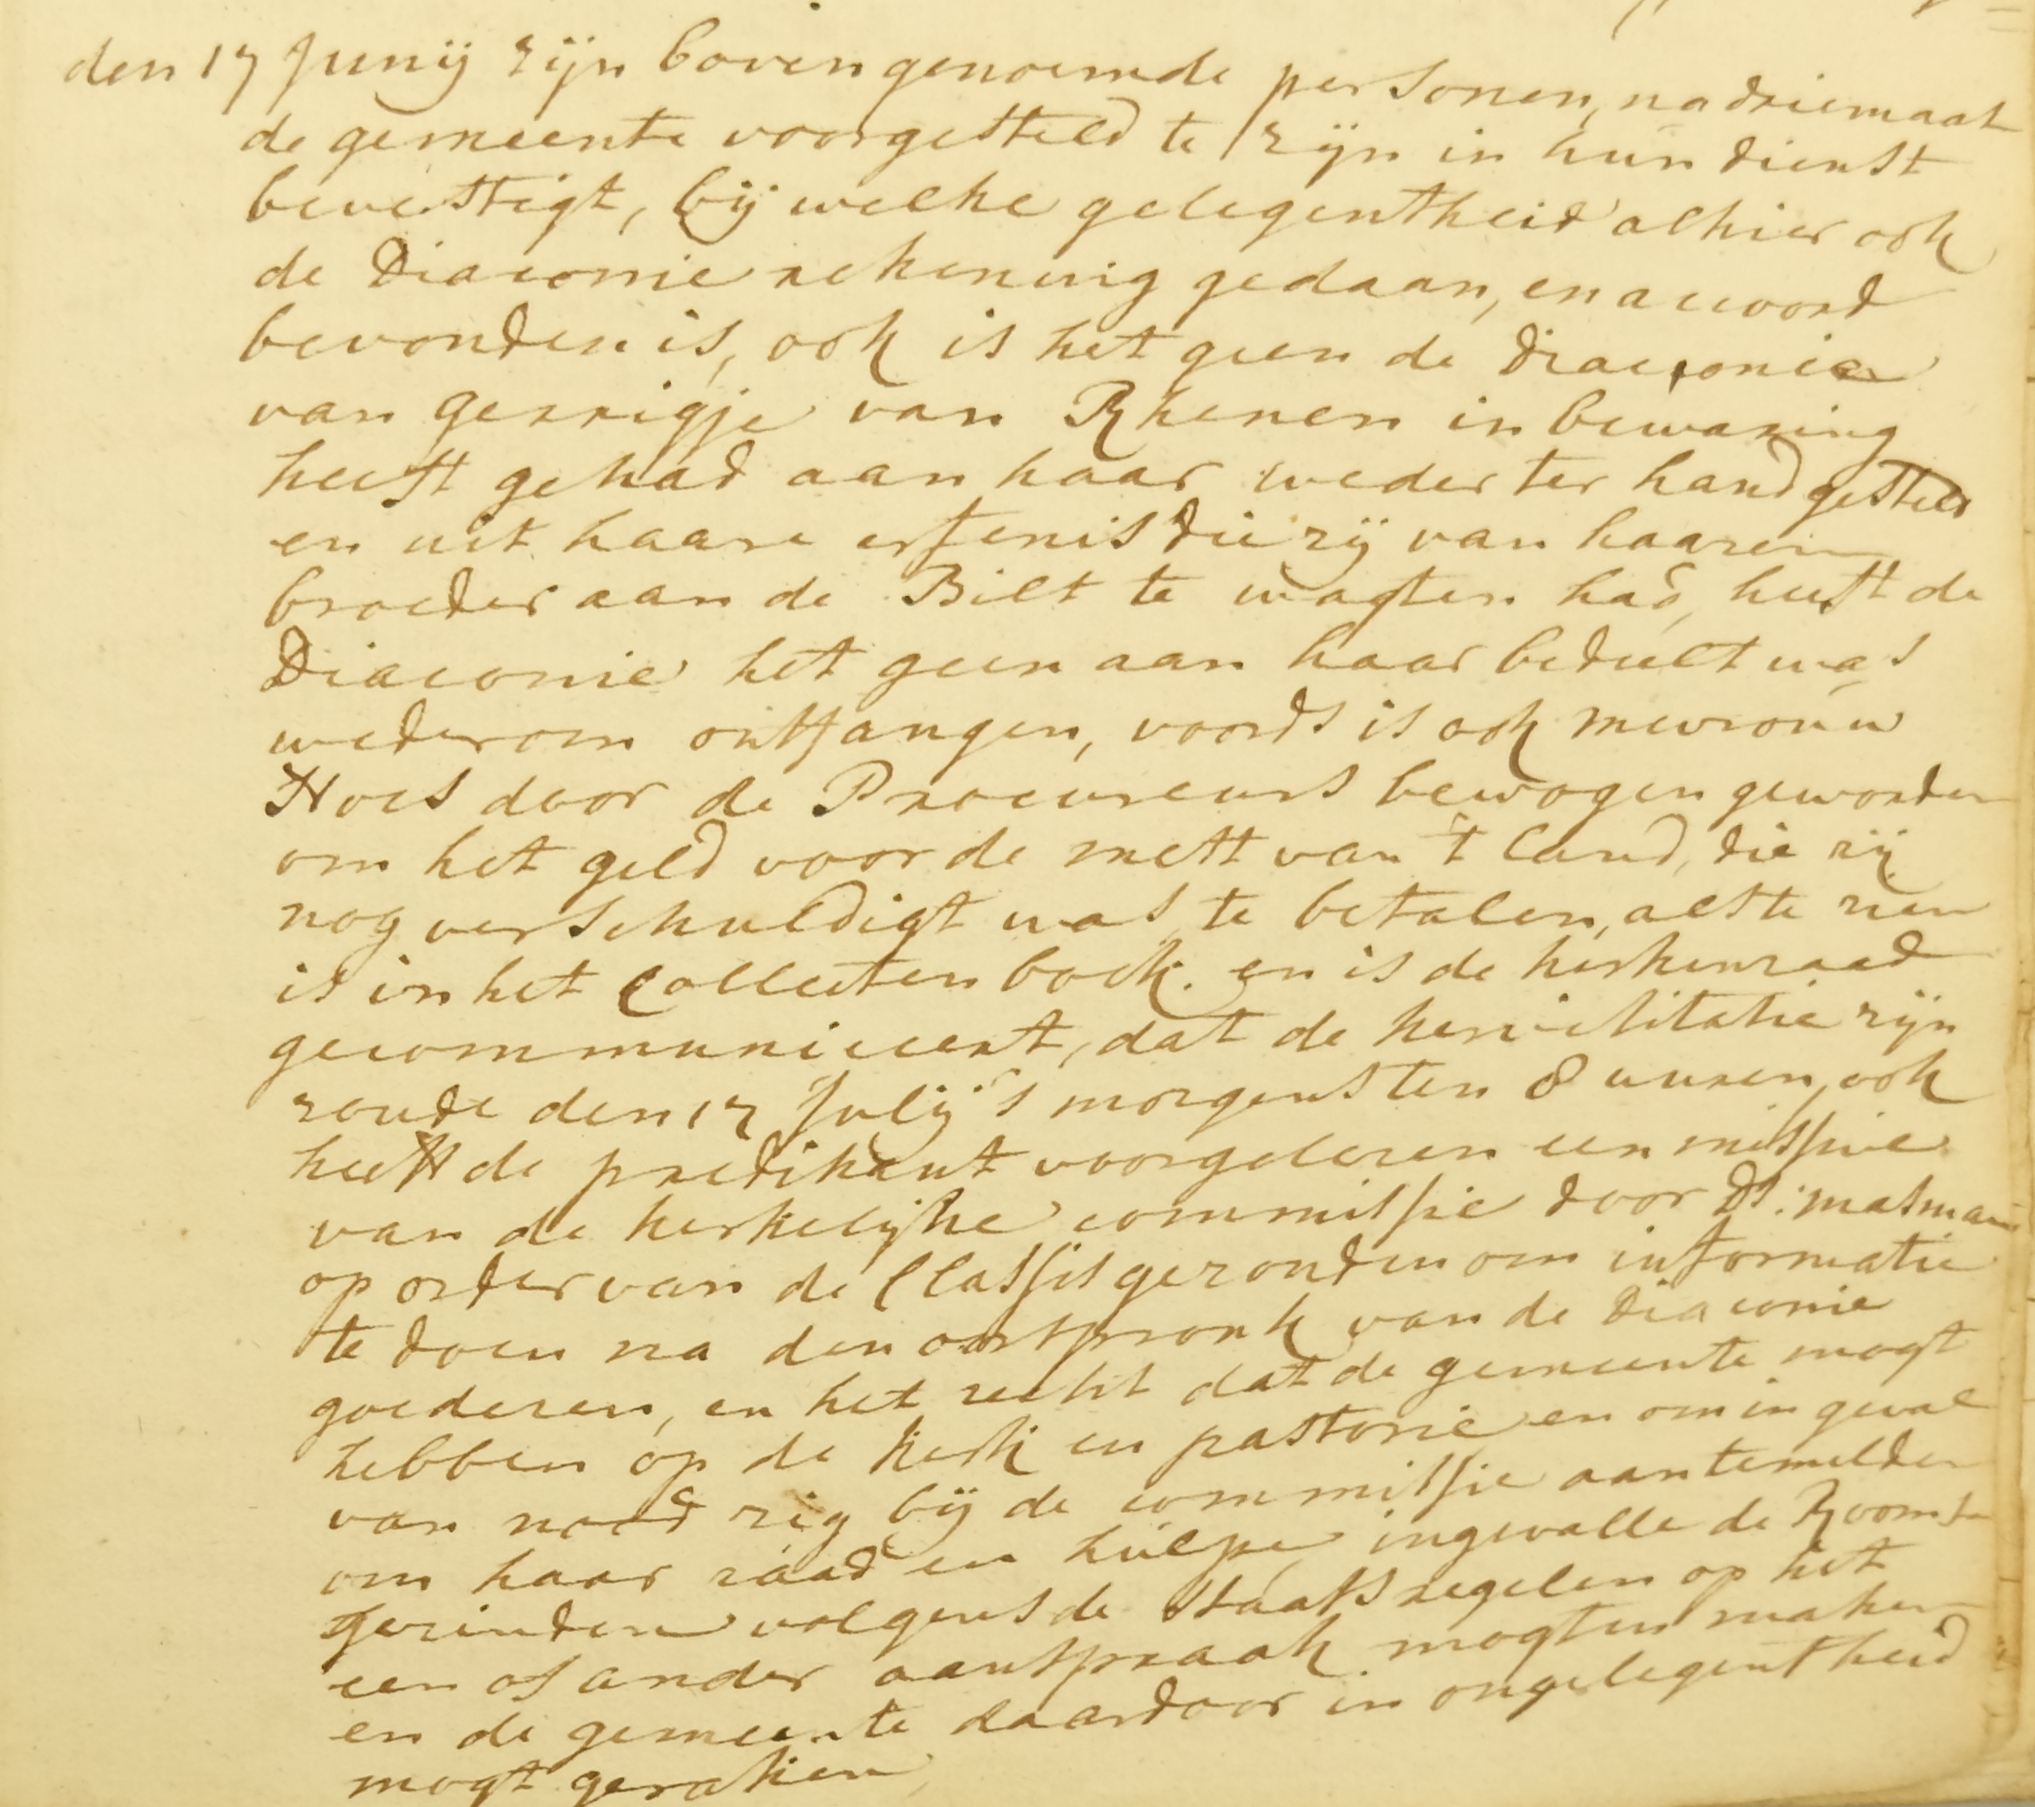 den 17 Junij zijn bovengenoemde personen, na driemaal
de gemeente voorgesteld te zijn in hun dienst
bevestigt, bij welke gelegentheid alhier ook
de Diaconie rekening gedaan, en accoord
bevonden is, ook is het geen de diaconie
van gerrigje van Rhenen in bewaring
heeft gehad aan haar weder ter hand gesteld
en uit haare erfenis die zij van haaren
broeder aan de Bilt te wagten had, heeft de
Diaconie het geen aan haar bedeelt was
wederom ontfangen, voords is ook mevrouw
Hoes door de Procureurs bewogen geworden
om het geld voor de mett van 't land, die zij
nog verschuldigt was te betalen, als te zien
is in het Collecten boek. en is de kerkenraad
gecommuniceert, dat de kerkvisitatie zijn
zoude den 17 Julij 's morgens ten 8 uuren, ook
heeft de predikant voorgelezen een missive
van de kerkelijke commissie door Ds: masman
op order van de Classis gezonden om informatie
te doen na den oorspronk van de diaconie
goederen, en het recht dat de gemeente mogt
hebben op de kerk en pastorie en om in geval
van nood zig bij de commissie aantemelden
om haar raad en hulpe, ingevalle de Rooms
gezinden volgens de staats regelen op het
een of ander aanspraak mogten maken
en de gemeente daardoor in ongelegentheid
mogt geraken,